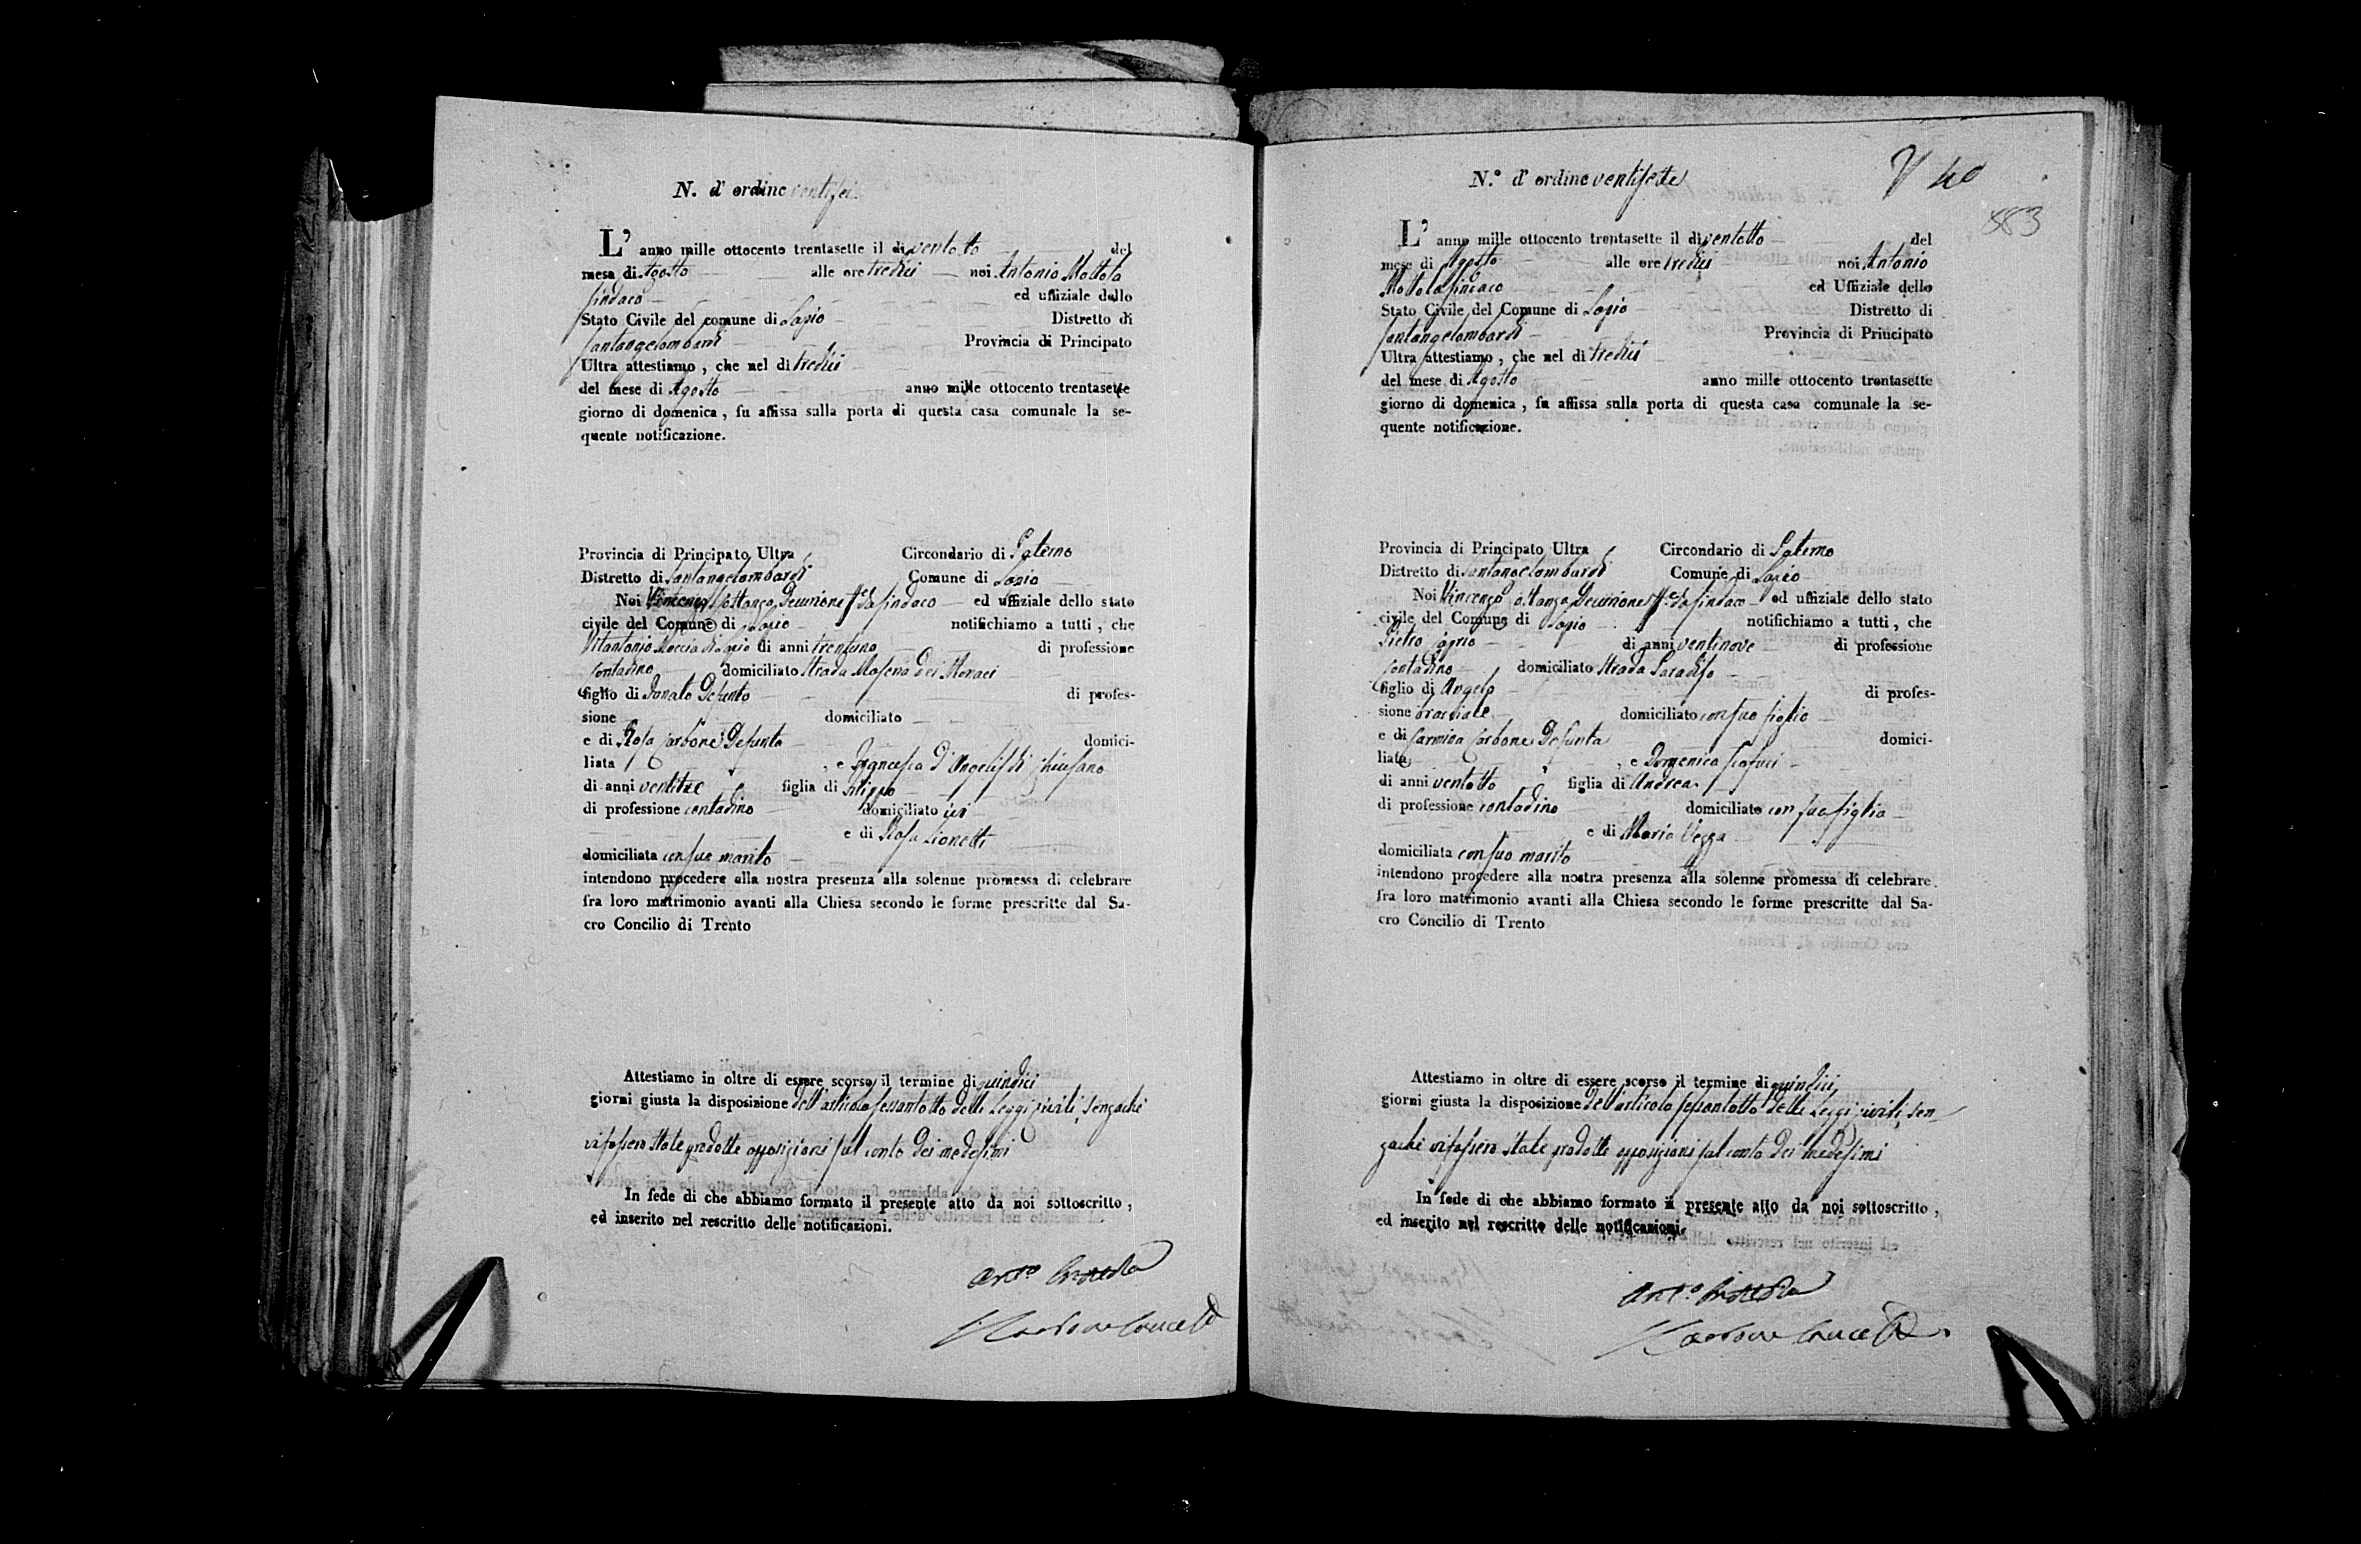 N. d' ordine ventisei
L' anno mille ottocento trentasette il di ventotto del
mese di Agosto alle ore tredici noi Antonio Mottola
Sindaco ed uffiziale dello
Stato Civile del comune di Lapio Distretto di
Santangelombardi Provincia di Principato
Ultra attestiamo, che nel dì tredici
del mese di Agosto anno mille ottocento trentasette
giorno di domenica, fu affissa sulla porta di questa casa comunale la se-
quente notificazione.
Provincia di Principato Ultra Circondario di Paterno
Distretto di Santangelombardi Comune di Lapio
Noi Vincenzo Decurione Sindaco ed uffiziale dello stato
civile del Comune di Lapio notifichiamo a tutti, che
Vitantonio Moccia di Lapio di anni trentuno di professione
Contadino domiciliato Strada Maseria dei Monaci
figlio di Donato Defunto di profes-
sione domiciliato
e di Rosa Carbone Defunta domici-
liata , e Francesca D'Angelis di Chiusano
di anni ventitre figlia di Filippo
di professione contadino domiciliato ivi
e di Rosa Lionetti
domiciliata con suo marito
intendono procedere alla nostra presenza alla solenne promessa di celebrare
fra loro matrimonio avanti alla Chiesa secondo le forme prescritte dal Sa-
cro Concilio di Trento
Attestiamo in oltre di essere scorso il termine di quindici
giorni giusta la disposizione dell'articolo sessantotto delle Leggi civili, senzachè
vi fossero state prodotte opposizioni sul conto dei medesimi
In fede di che abbiamo formato il presente atto da noi sottoscritto,
ed inserito nel rescritto delle notificazioni.
Ant.o Mottola
N.° d' ordine ventisette
40
883
L' anno mille ottocento trentasette il dì ventotto del
mese di Agosto alle ore tredici noi Antonio
Mottola Sindaco ed Uffiziale dello
Stato Civile del Comune di Lapio Distretto di
Santangelombardi Provincia di Principato
Ultra attestiamo, che nel dì tredici
del mese di Agosto anno mille ottocento trentasette
giorno di domenica, fu affissa sulla porta di questa casa comunale la se-
quente notificazione.
Provincia di Principato Ultra Circondario di Paterno
Distretto di Santangelombardi Comune di Lapio
Noi Vincenzo Decurione Sindaco ed uffiziale dello stato
civile del Comune di Lapio notifichiamo a tutti, che
Pietro Caprio di anni ventinove di professione
Contadino domiciliato Strada Paradiso
figlio di Angelo di profes-
sione bracciale domiciliato con suo figlio
e di Carmina Carbone Defunta domici-
liata , e Domenica Scafuri
di anni ventotto figlia di Andrea
di professione contadino domiciliato con sua figlia
e di Maria Vezza
domiciliata con suo marito
intendono procedere alla nostra presenza alla solenne promessa di celebrare
fra loro matrimonio avanti alla Chiesa secondo le forme prescritte dal Sa-
cro Concilio di Trento
Attestiamo in oltre di essere scorso il termine di quindici
giorni giusta la disposizione dell'articolo sessantotto delle Leggi civili, sen-
zachè vi fossero state prodotte opposizioni sul conto dei medesimi
In fede di che abbiamo formato il presente atto da noi sottoscritto,
ed inserito nel rescritto delle notificazioni.
Ant.o Mottola